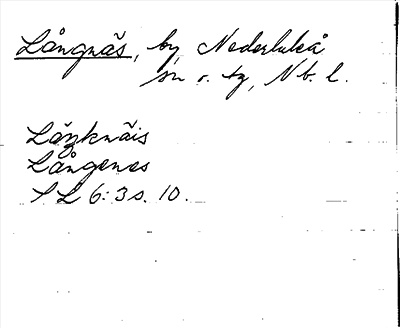 Långnäs, by, Nederluleå
sn o. tg, Nb. l.
Långknäis
Långenes
SL 6:3 s. 10.